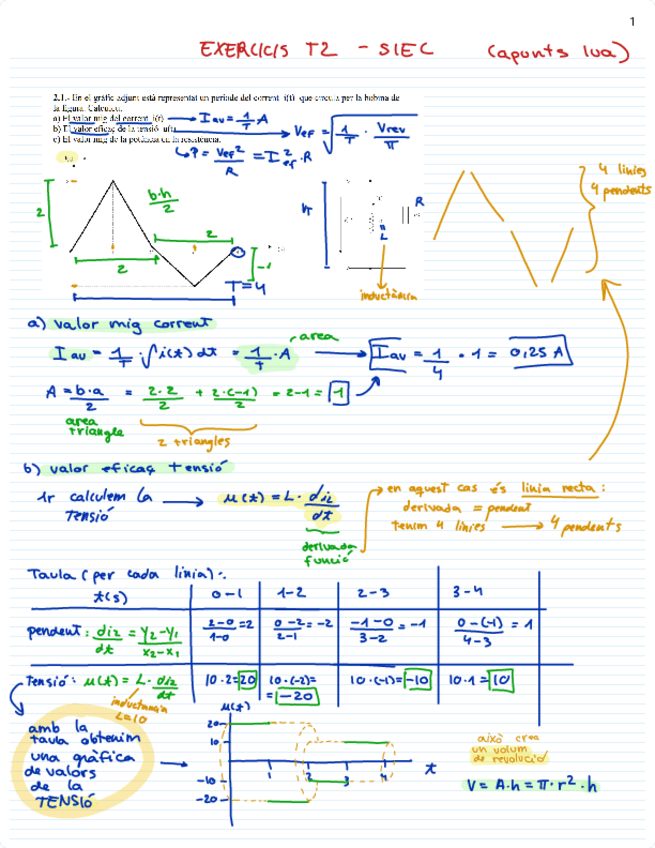 1
EXERCICIS T2 - SIEC (apunts lua)
2.1.- En el gràfic adjunt està representat un període del corrent i(t) que circula per la bobina de
la figura. Calculeu:
a) El valor mig del corrent i(t) → Iav = 1/T · A
b) El valor eficaç de la tensió u(t) → Vef = √(1/T · Vrev/π)
c) El valor mig de la potència en la resistència.
↳ P = Vef²/R = I²ef · R
4 línies
4 pendents
b·h/2
2
2
2
-1
T=4
R
L
inductància
a) valor mig corrent
Iav = 1/T · ∫i(t) dt = 1/T · A → Iav = 1/4 · 1 = 0,25 A
area
A = b·a/2 = 2·2/2 + 2·(-1)/2 = 2-1 = 1
area
triangle
2 triangles
b) valor eficaç tensió
1r calculem la
TENSIÓ → u(t) = L · diL/dt
derivada
funció
en aquest cas és línia recta:
derivada = pendent
tenim 4 línies → 4 pendents
Taula (per cada línia):
t(s) 0-1 1-2 2-3 3-4
pendent: diL/dt = y2-y1/x2-x1 2-0/1-0 = 2 0-2/2-1 = -2 -1-0/3-2 = -1 0-(-1)/4-3 = 1
Tensió: u(t) = L · diL/dt 10·2=20 10·(-2)= =-20 10·(-1)=-10 10·1=10
inductància
L=10
amb la
taula obtenim
una gràfica
de valors
de la
TENSIÓ
u(t)
20
10
-10
-20
1 2 3 4 t
això crea
un volum
de revolució
V = A·h = π·r²·h